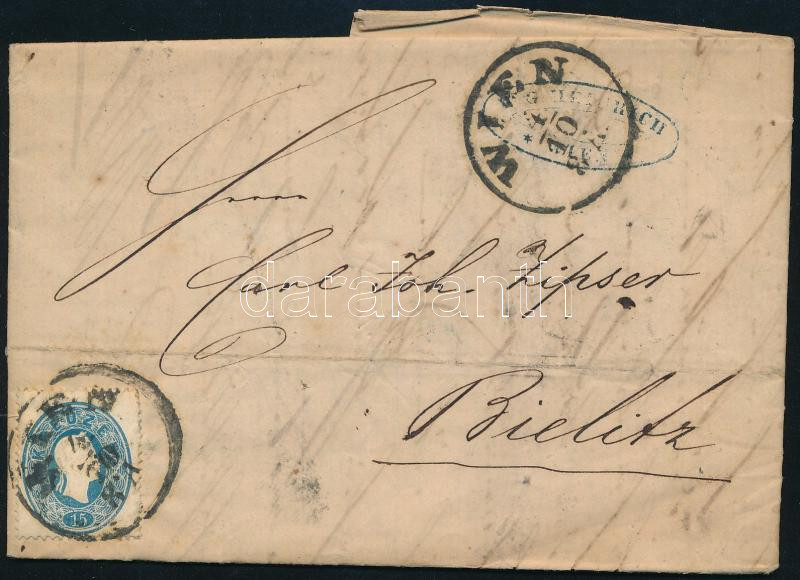 WIEN
10
Herrn
Carl Joh. Zipser
darabanth
Bielitz
WIEN
KREUZER
15